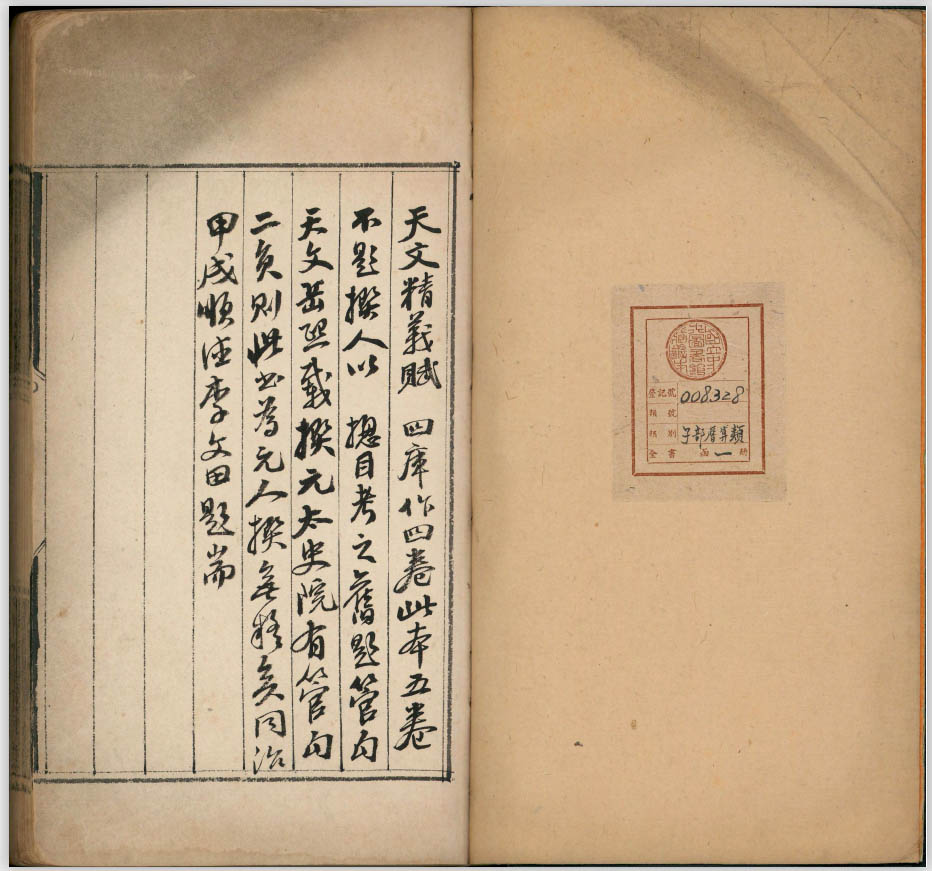 登記號 008328
類號
別 子部曆算類
全書 函一冊
天文精義賦 四庫作四卷此本五卷
不題撰人以 摠目考之舊題管勾
天文岳熙載撰元太史院有管勾
二員則此書為元人撰無疑矣同治
甲戌順德李文田題耑